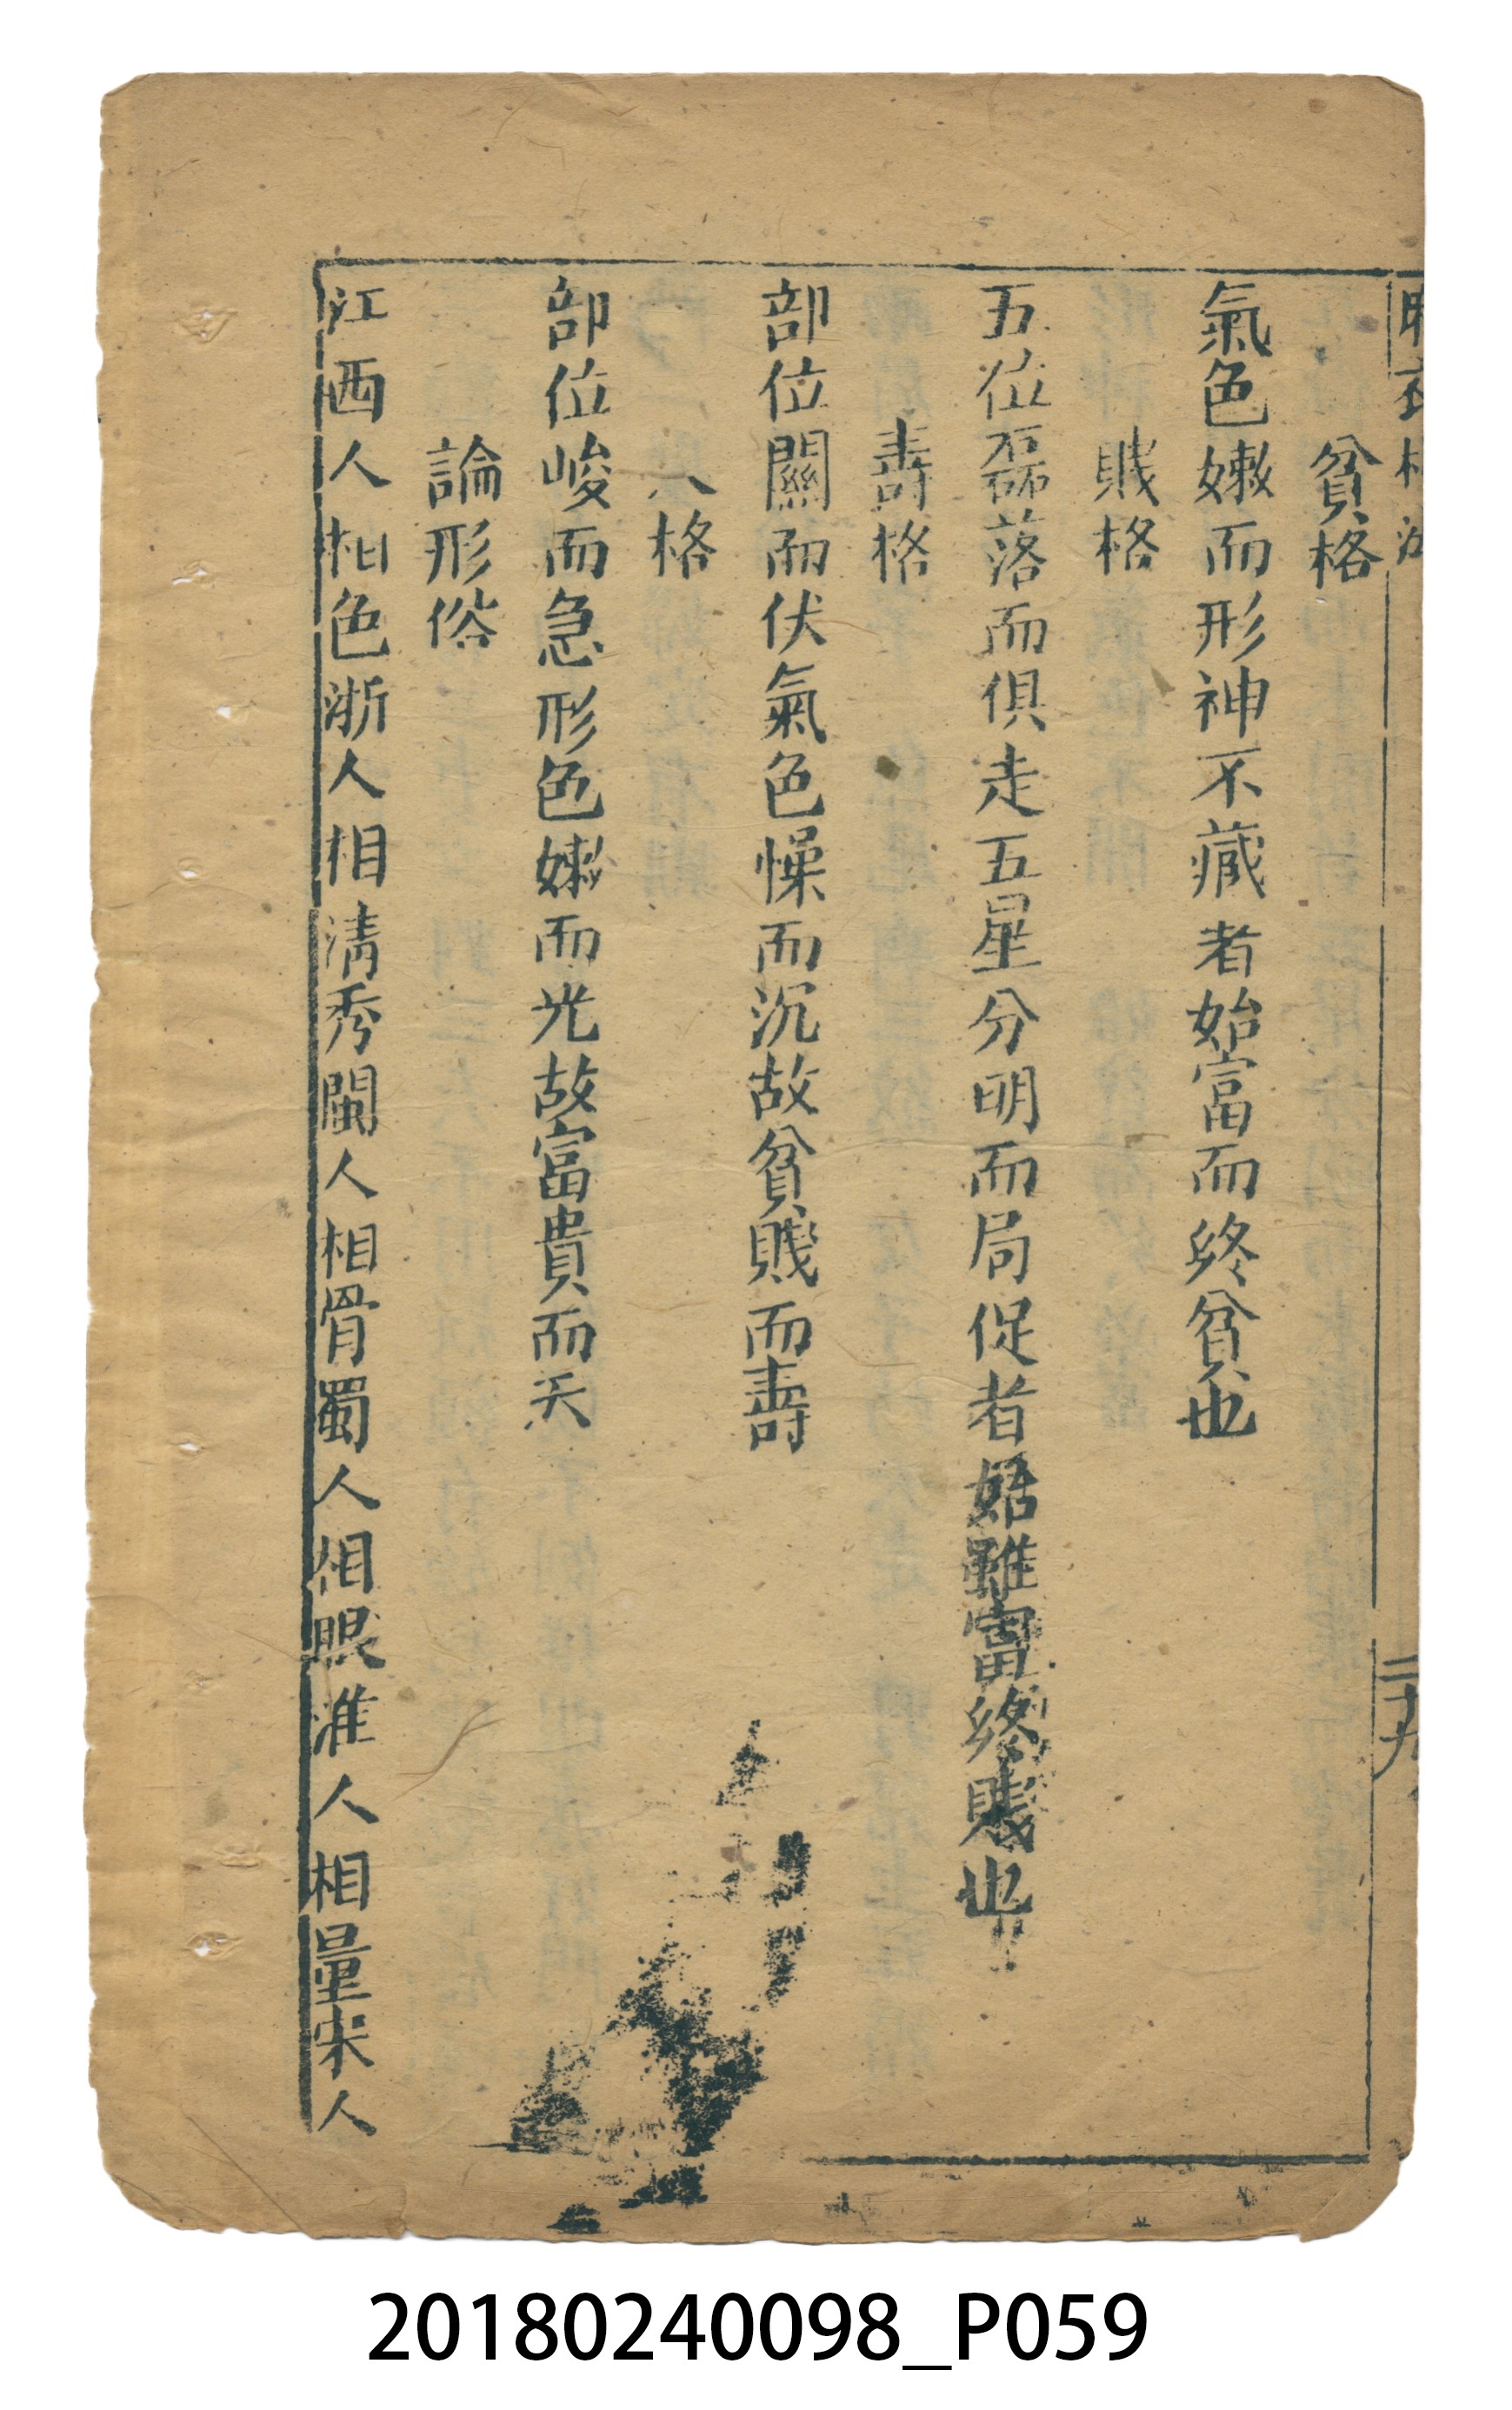 麻衣相法
二十九
貧格
氣色嫰而形神不藏者始富而終貧也
賎格
五位磊落而俱走五星分明而局促者始雖富終賎也
壽格
部位關而伏氣色慔而沉故貧賎而壽
八格
部位峻而急形色嫰而光故富貴而夭
論形俗
江西人相色浙人相清秀閩人相骨蜀人相眼淮人相量宋人
20180240098_P059